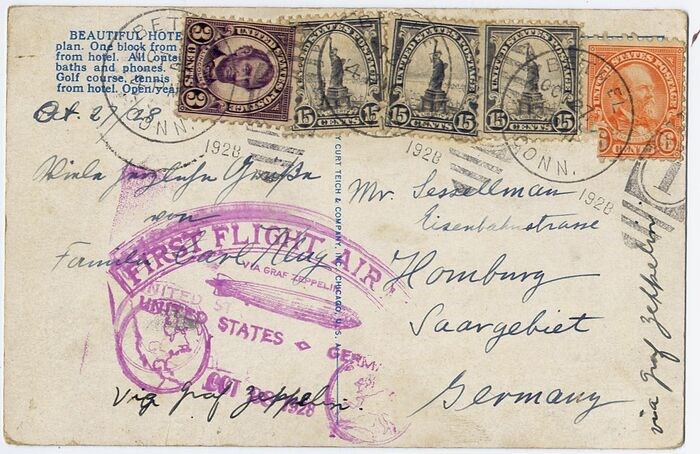 BEAUTIFUL HOTE
plan. One block from
from hotel. All
baths and phones.
Golf course, tennis
from hotel. Open/year
Oct. 27/28
UNITED STATES POSTAGE
3 CENTS 3
UNITED STATES POSTAGE
15 CENTS 15
UNITED STATES POSTAGE
15 CENTS 15
UNITED STATES POSTAGE
15 CENTS 15
UNITED STATES POSTAGE
6 CENTS 6
CONN.
1928
1928
CONN.
1928
Viele herzliche Grüße
von
Familie Carl Klug
Mr. Sesselman
Eisenbahnstrasse
Homburg
Saargebiet
Germany
via Graf Zeppelin.
via Graf Zeppelin
CURT TEICH & COMPANY, CHICAGO, U.S.A.
FIRST FLIGHT AIR
VIA GRAF ZEPPELIN
UNITED STATES
GERM
OCT 28 1928